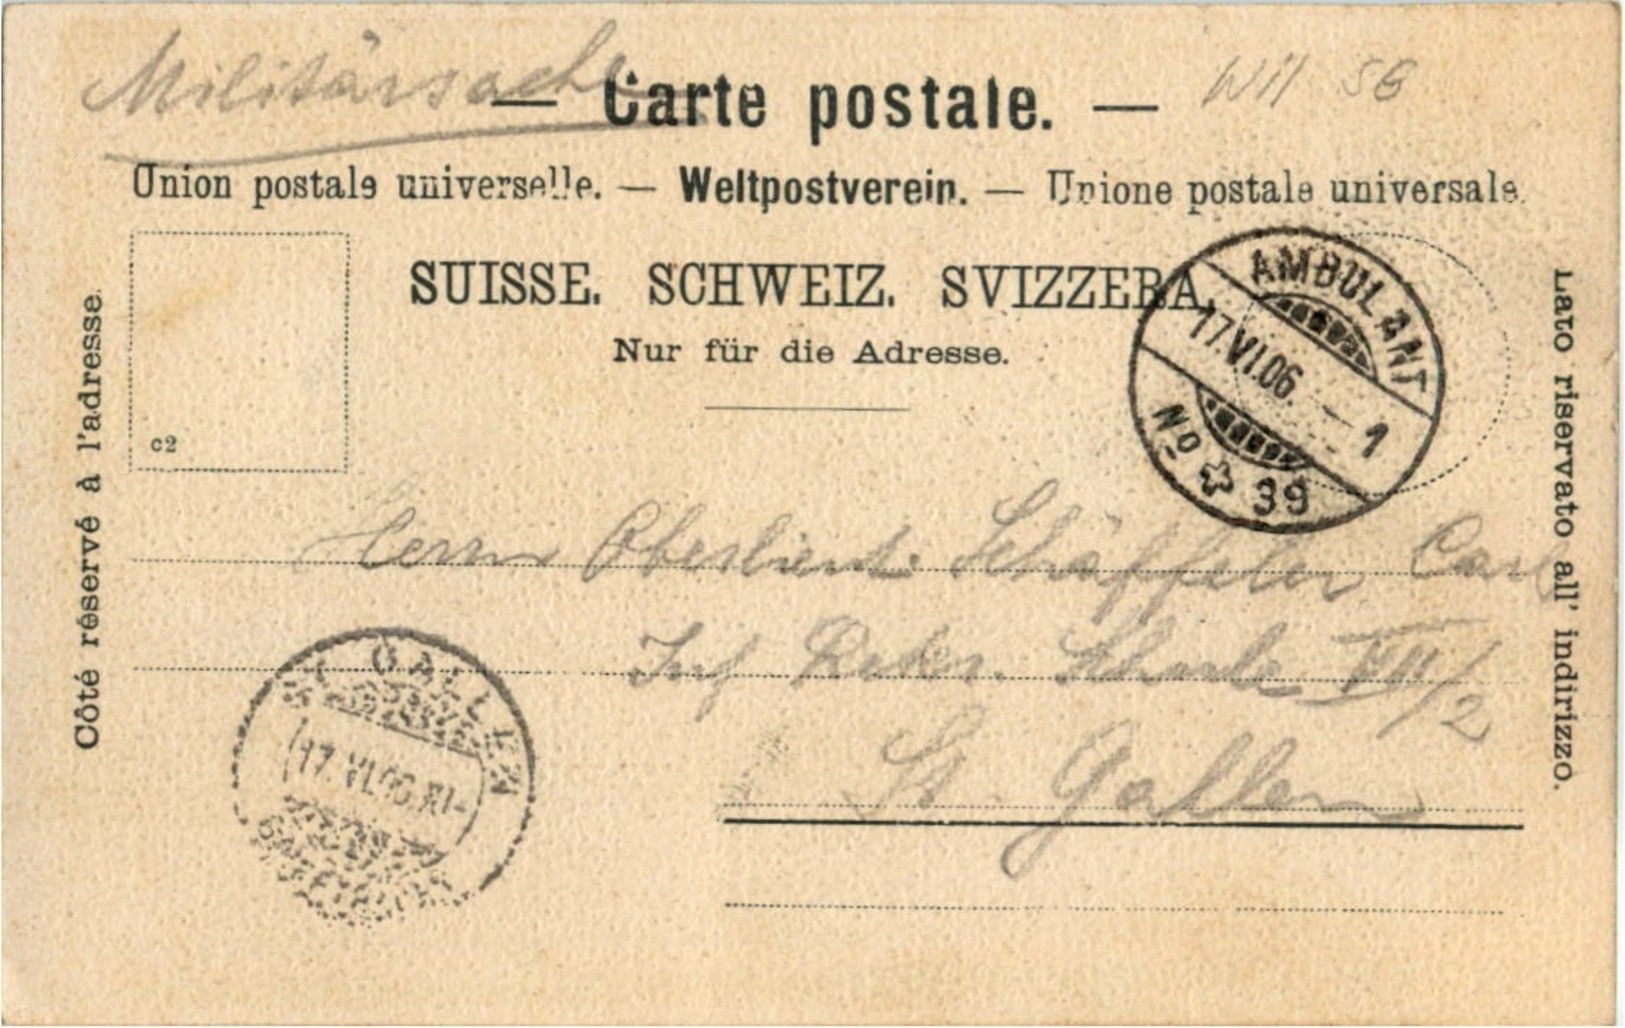 Militärsache
Wil SG
— Carte postale. —
Union postale universelle. — Weltpostverein. — Unione postale universale.
SUISSE. SCHWEIZ. SVIZZERA.
Nur für die Adresse.
Côté réservé à l'adresse.
Lato riservato all' indirizzo.
c2
AMBULANT
17.VI.06. — 1
No 39
Herrn Oberlieut. Schäffeler Carl
Inf Rekr. Schule VII/2
St. Gallen
ST. GALLEN
17.VI.06.XI-